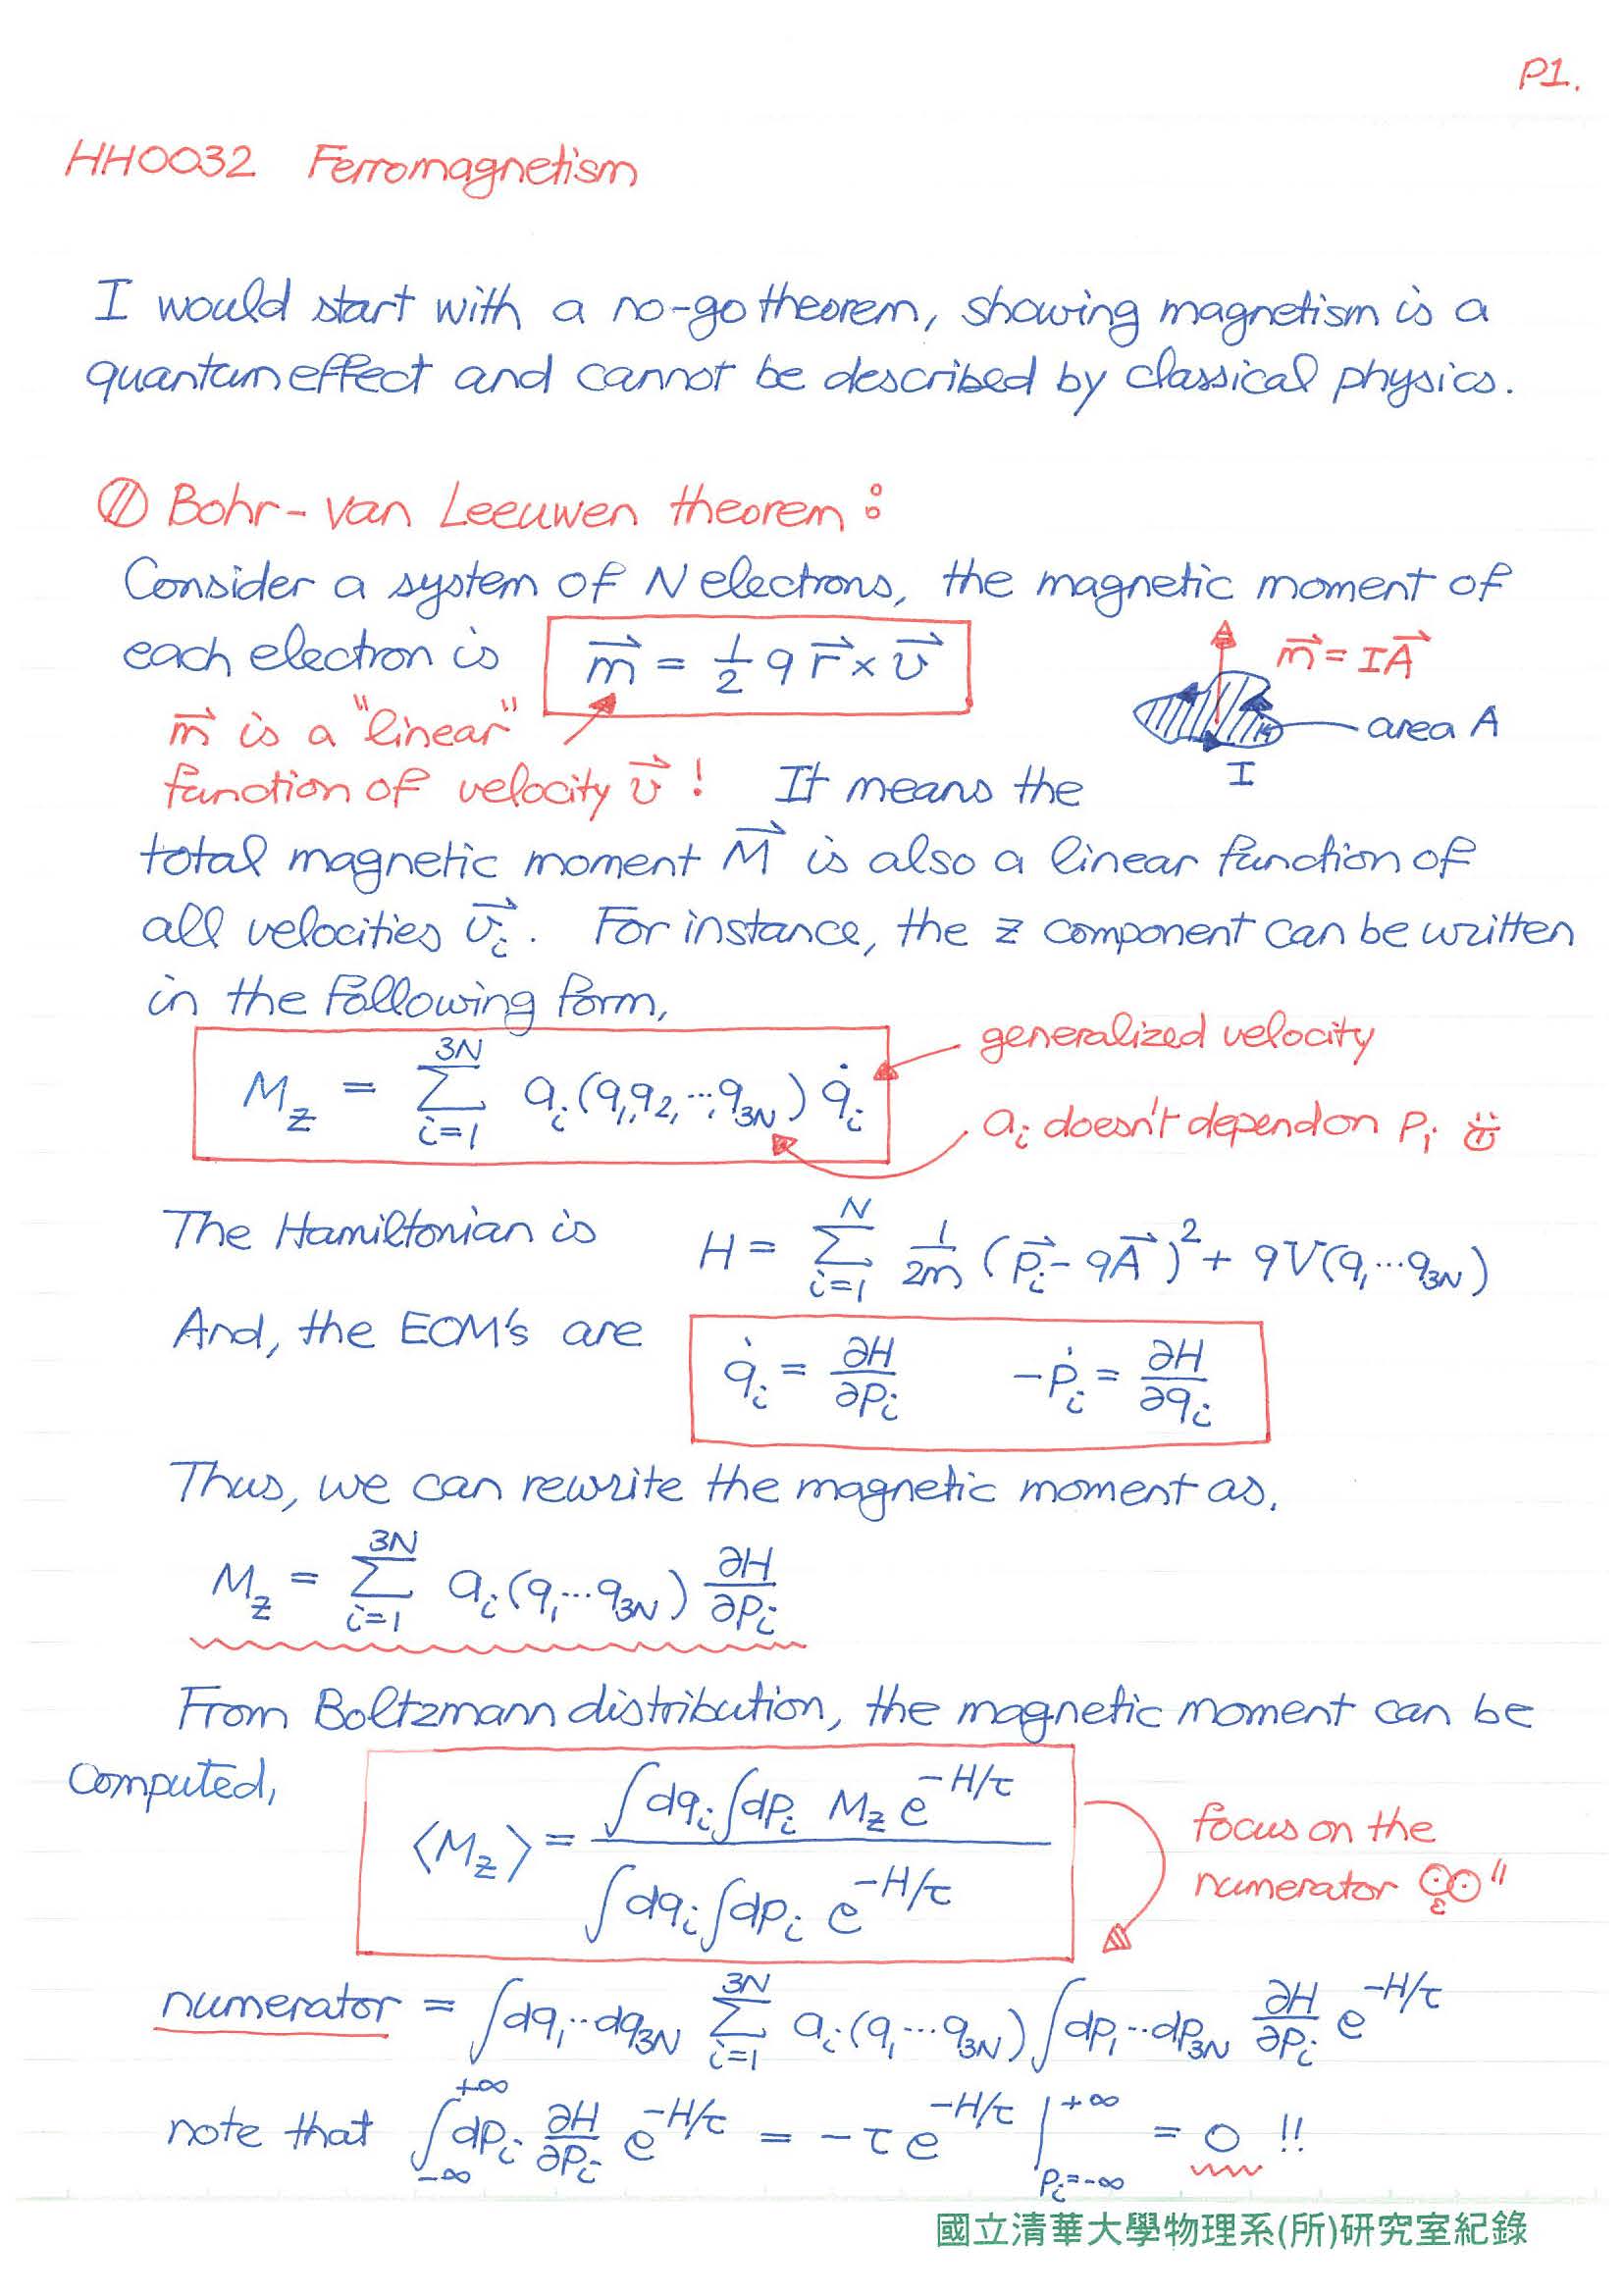 P1.
HH0032 Ferromagnetism
I would start with a no-go theorem, showing magnetism is a
quantum effect and cannot be described by classical physics.
Bohr-van Leeuwen theorem:
Consider a system of N electrons, the magnetic moment of
each electron is m⃗ = 1/2 q r⃗ × v⃗
m⃗ = IA⃗
area A
I
m⃗ is a "linear"
function of velocity v⃗ ! It means the
total magnetic moment M⃗ is also a linear function of
all velocities v⃗_i. For instance, the z component can be written
in the following form,
M_z = Σ_{i=1}^{3N} a_i(q_1,q_2,...,q_{3N}) q̇_i
generalized velocity
a_i doesn't depend on p_i
The Hamiltonian is H = Σ_{i=1}^{N} 1/2m (p⃗_i - qA⃗)^2 + qV(q_1...q_{3N})
And, the EOM's are q̇_i = ∂H/∂p_i -ṗ_i = ∂H/∂q_i
Thus, we can rewrite the magnetic moment as,
M_z = Σ_{i=1}^{3N} a_i(q_1...q_{3N}) ∂H/∂p_i
From Boltzmann distribution, the magnetic moment can be
computed,
⟨M_z⟩ = ∫dq_i∫dp_i M_z e^{-H/τ} / ∫dq_i∫dp_i e^{-H/τ}
focus on the
numerator
numerator = ∫dq_1..dq_{3N} Σ_{i=1}^{3N} a_i(q_1...q_{3N}) ∫dp_1..dp_{3N} ∂H/∂p_i e^{-H/τ}
note that ∫_{-∞}^{+∞} dp_i ∂H/∂p_i e^{-H/τ} = -τ e^{-H/τ} |_{p_i=-∞}^{+∞} = 0 !!
國立清華大學物理系(所)研究室紀錄